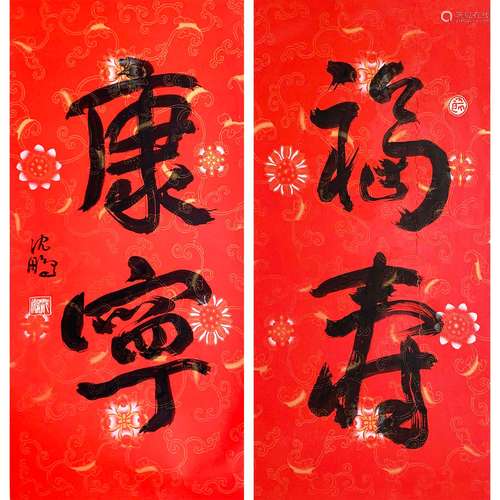 福壽
康寧
沈鵬